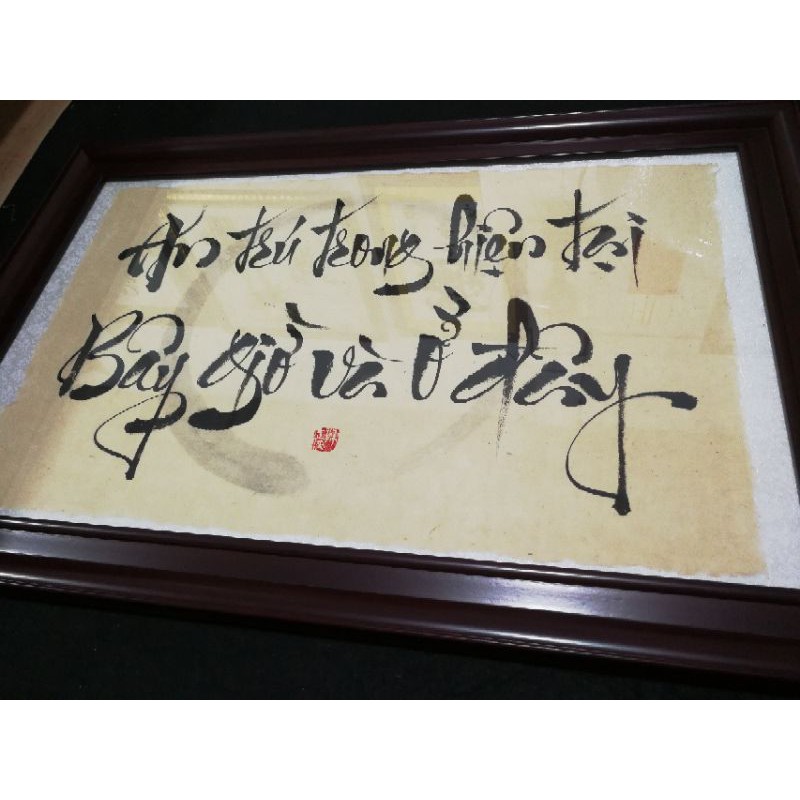 An trú trong hiện tại
Bây giờ và ở đây